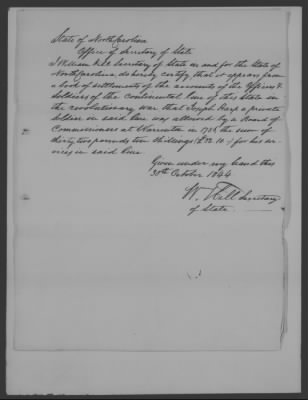 State of North Carolina
Office of Secretary of State
I William Hill Secretary of State in and for the State of
North Carolina, do hereby certify, that it appears from
a book of settlements of the accounts of the Officers &
Soldiers of the Continental line of this state in
the revolutionary war that Joseph a private
soldier in said line was allowed by a Board of
Commissioners at Warrenton in the sum of
thirty two pounds ten shillings (£32.10.-) for his ser-
vices in said line.
Given under my hand this
30th October 1844
W. Hill Secretary
of State